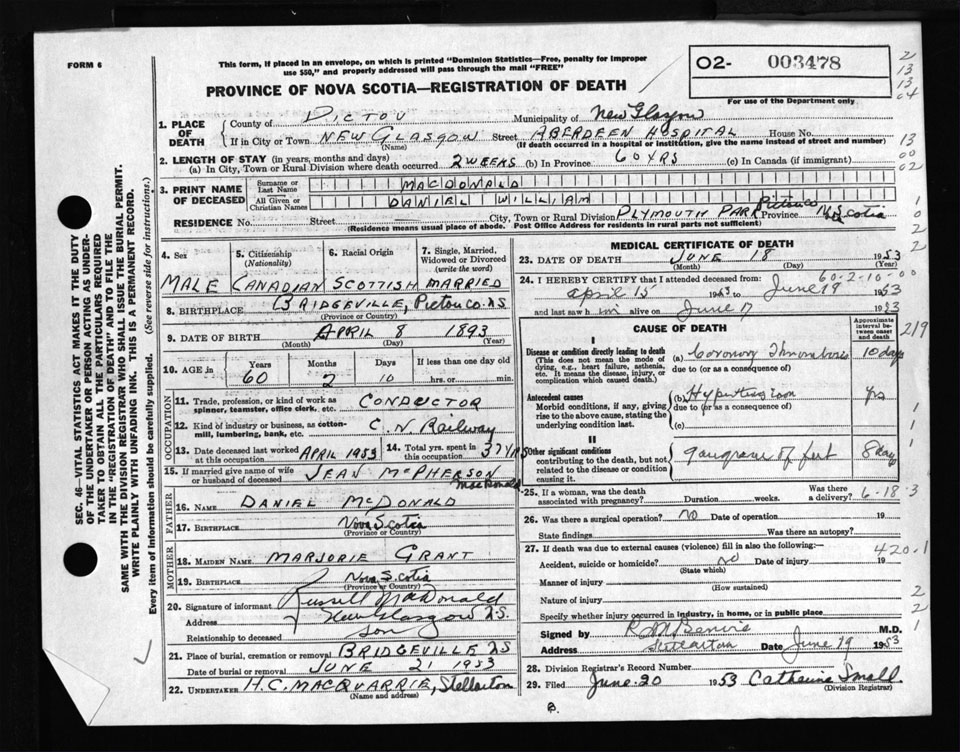 FORM 6
This form, if placed in an envelope, on which is printed "Dominion Statistics—Free, penalty for improper
use $50," and properly addressed will pass through the mail "FREE"
O2- 003478
2
13
13
04
PROVINCE OF NOVA SCOTIA—REGISTRATION OF DEATH
For use of the Department only
1. PLACE OF DEATH
County of PICTOU Municipality of New Glasgow
If in City or Town NEW GLASGOW Street ABERDEEN HOSPITAL House No.
(Name) (If death occurred in a hospital or institution, give the name instead of street and number)
13
00
02
2. LENGTH OF STAY (in years, months and days)
(a) In City, Town or Rural Division where death occurred 2 WEEKS (b) In Province 60 YRS (c) In Canada (if immigrant)
3. PRINT NAME OF DECEASED
Surname or Last Name MACDONALD
All Given or Christian Names DANIEL WILLIAM
1
0
2
RESIDENCE No. Street City, Town or Rural Division PLYMOUTH PARK Pictou Co Province N. Scotia
(Residence means usual place of abode. Post Office Address for residents in rural parts not sufficient)
4. Sex
5. Citizenship (Nationality)
6. Racial Origin
7. Single, Married, Widowed or Divorced (write the word)
MALE CANADIAN SCOTTISH MARRIED
8. BIRTHPLACE BRIDGEVILLE, Pictou Co. NS
(Province or Country)
9. DATE OF BIRTH APRIL 8 1893
(Month) (Day) (Year)
10. AGE in Years Months Days If less than one day old
60 2 10 hrs. or min.
OCCUPATION
11. Trade, profession, or kind of work as spinner, teamster, office clerk, etc. CONDUCTOR
12. Kind of industry or business, as cotton-mill, lumbering, bank, etc. C. N Railway
13. Date deceased last worked at this occupation APRIL 1953
14. Total yrs. spent in this occupation 37 YRS
15. If married give name of wife or husband of deceased JEAN McPHERSON MacDonald
FATHER
16. NAME DANIEL McDONALD
17. BIRTHPLACE Nova Scotia
(Province or Country)
MOTHER
18. MAIDEN NAME MARJORIE GRANT
19. BIRTHPLACE Nova Scotia
(Province or Country)
20. Signature of informant Russell MacDonald
Address New Glasgow NS.
Relationship to deceased Son
21. Place of burial, cremation or removal BRIDGEVILLE NS
Date of burial or removal JUNE 21 1953
22. UNDERTAKER H.C. MACQUARRIE, Stellarton
(Name and address)
MEDICAL CERTIFICATE OF DEATH
2
23. DATE OF DEATH JUNE 18 1953
(Month) (Day) (Year)
60-2-10-00
24. I HEREBY CERTIFY that I attended deceased from:
April 15 1953 to June 18 1953
and last saw him alive on June 17 1953
219
CAUSE OF DEATH
Approximate interval between onset and death
I
Disease or condition directly leading to death
(This does not mean the mode of dying, e.g., heart failure, asthenia, etc. It means the disease, injury, or complication which caused death.)
(a) Coronary Thrombosis 10 days
due to (or as a consequence of)
Antecedent causes
Morbid conditions, if any, giving rise to the above cause, stating the underlying condition last.
(b) Hypertension yrs
due to (or as a consequence of)
(c)
1
1
II
Other significant conditions
contributing to the death, but not related to the disease or condition causing it.
gangrene of feet 8 days
1
25. If a woman, was the death associated with pregnancy? Duration weeks. Was there a delivery? 6-18-3
26. Was there a surgical operation? NO Date of operation 19
State findings Was there an autopsy?
27. If death was due to external causes (violence) fill in also the following:—
420.1
Accident, suicide or homicide? no Date of injury 19
(State which)
Manner of injury
(How sustained)
Nature of injury
2
Specify whether injury occurred in industry, in home, or in public place
2
Signed by M.D.
1
Address Stellarton Date June 19 1953
28. Division Registrar's Record Number
29. Filed June 20 1953 Catherine Small
(Division Registrar)
SEC. 46—VITAL STATISTICS ACT MAKES IT THE DUTY
OF THE UNDERTAKER OR PERSON ACTING AS UNDER-
TAKER TO OBTAIN ALL THE PARTICULARS REQUIRED
IN THE "REGISTRATION OF DEATH" AND TO FILE THE
SAME WITH THE DIVISION REGISTRAR WHO SHALL ISSUE THE BURIAL PERMIT.
WRITE PLAINLY WITH UNFADING INK. THIS IS A PERMANENT RECORD.
Every item of information should be carefully supplied. (See reverse side for instructions.)